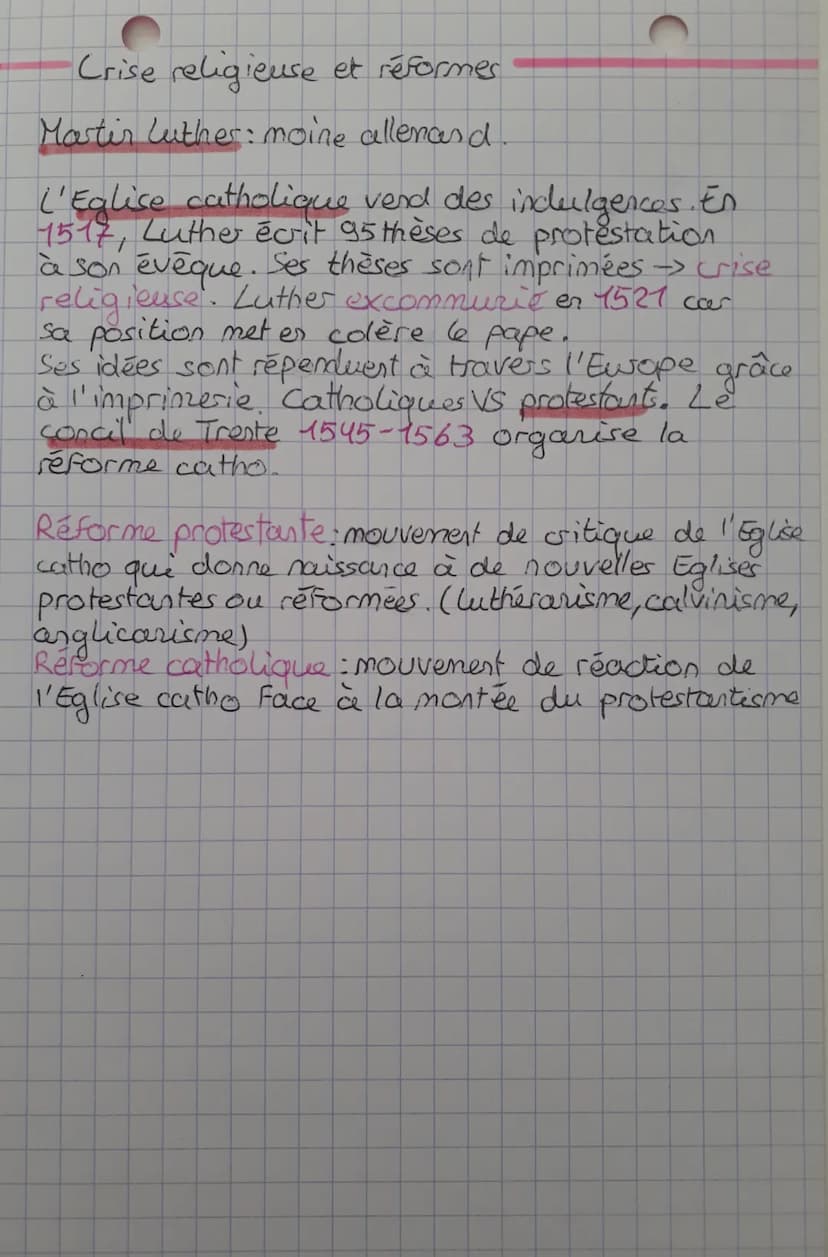 Crise religieuse et réformes
Martin Luther : moine allemand.
L'Eglise catholique vend des indulgences. En
1517, Luther écrit 95 thèses de protestation
à son évêque. Ses thèses sont imprimées -> crise
religieuse. Luther excommunié en 1521 car
sa position met en colère le pape.
Ses idées sont répenduent à travers l'Europe grâce
à l'imprimerie. Catholiques VS protestants. Le
concil de Trente 1545-1563 organise la
réforme catho.
Réforme protestante : mouvement de critique de l'Eglise
catho qui donne naissance à de nouvelles Eglises
protestantes ou réformées. (luthéranisme, calvinisme,
anglicanisme)
Réforme catholique : mouvement de réaction de
l'Eglise catho face à la montée du protestantisme